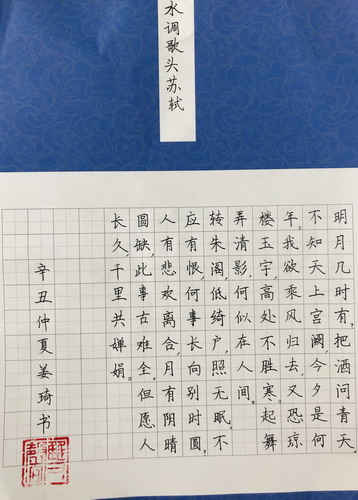 水调歌头苏轼
明月几时有,把酒问青天
不知天上宫阙,今夕是何
年。我欲乘风归去,又恐琼
楼玉宇,高处不胜寒。起舞
弄清影,何似在人间。
转朱阁,低绮户,照无眠。不
应有恨,何事长向别时圆。
人有悲欢离合,月有阴晴
圆缺,此事古难全。但愿人
长久,千里共婵娟。
辛丑仲夏姜琦书